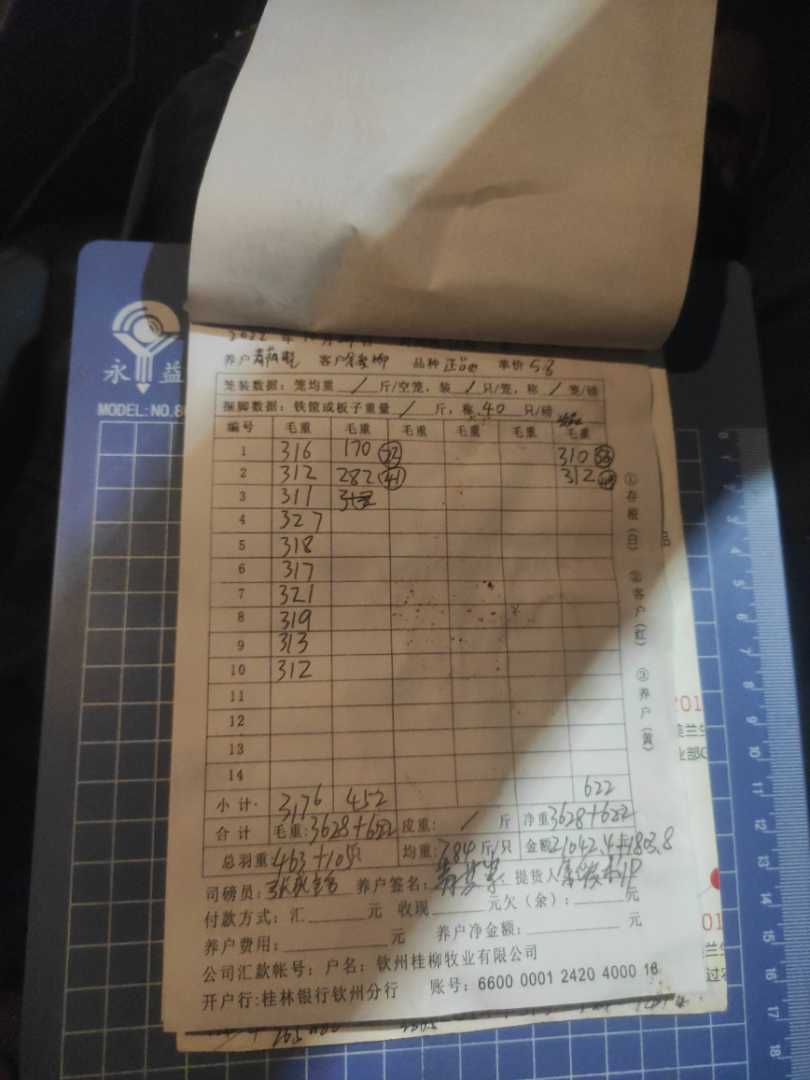 永益
MODEL: NO.8
2022 年
养户 客户 品种 正品 单价 5.8
笼装数据：笼均重 / 斤/空笼，装 / 只/笼，称 / 笼/磅
捆脚数据：铁筐或板子重量 / 斤，称 40 只/磅
编号 毛重 毛重 毛重 毛重 毛重 毛重
1 316 170 310
2 312 282 41 312
3 311
4 327
5 318
6 317
7 321
8 319
9 313
10 312
11
12
13
14
小计 3176 452 622
合计 毛重：3628+622 皮重： / 斤 净重3628+622
总羽重：463+105只 均重：7.84斤/只 金额21042.4+1803.8
司磅员： 养户签名： 提货人
付款方式：汇 元 收现 元欠（余）： 元
养户费用： 元 养户净金额： 元
公司汇款帐号：户名：钦州桂柳牧业有限公司
开户行：桂林银行钦州分行 账号：6600 0001 2420 4000 16
①存根（白） ②客户（红） ③养户（黄）